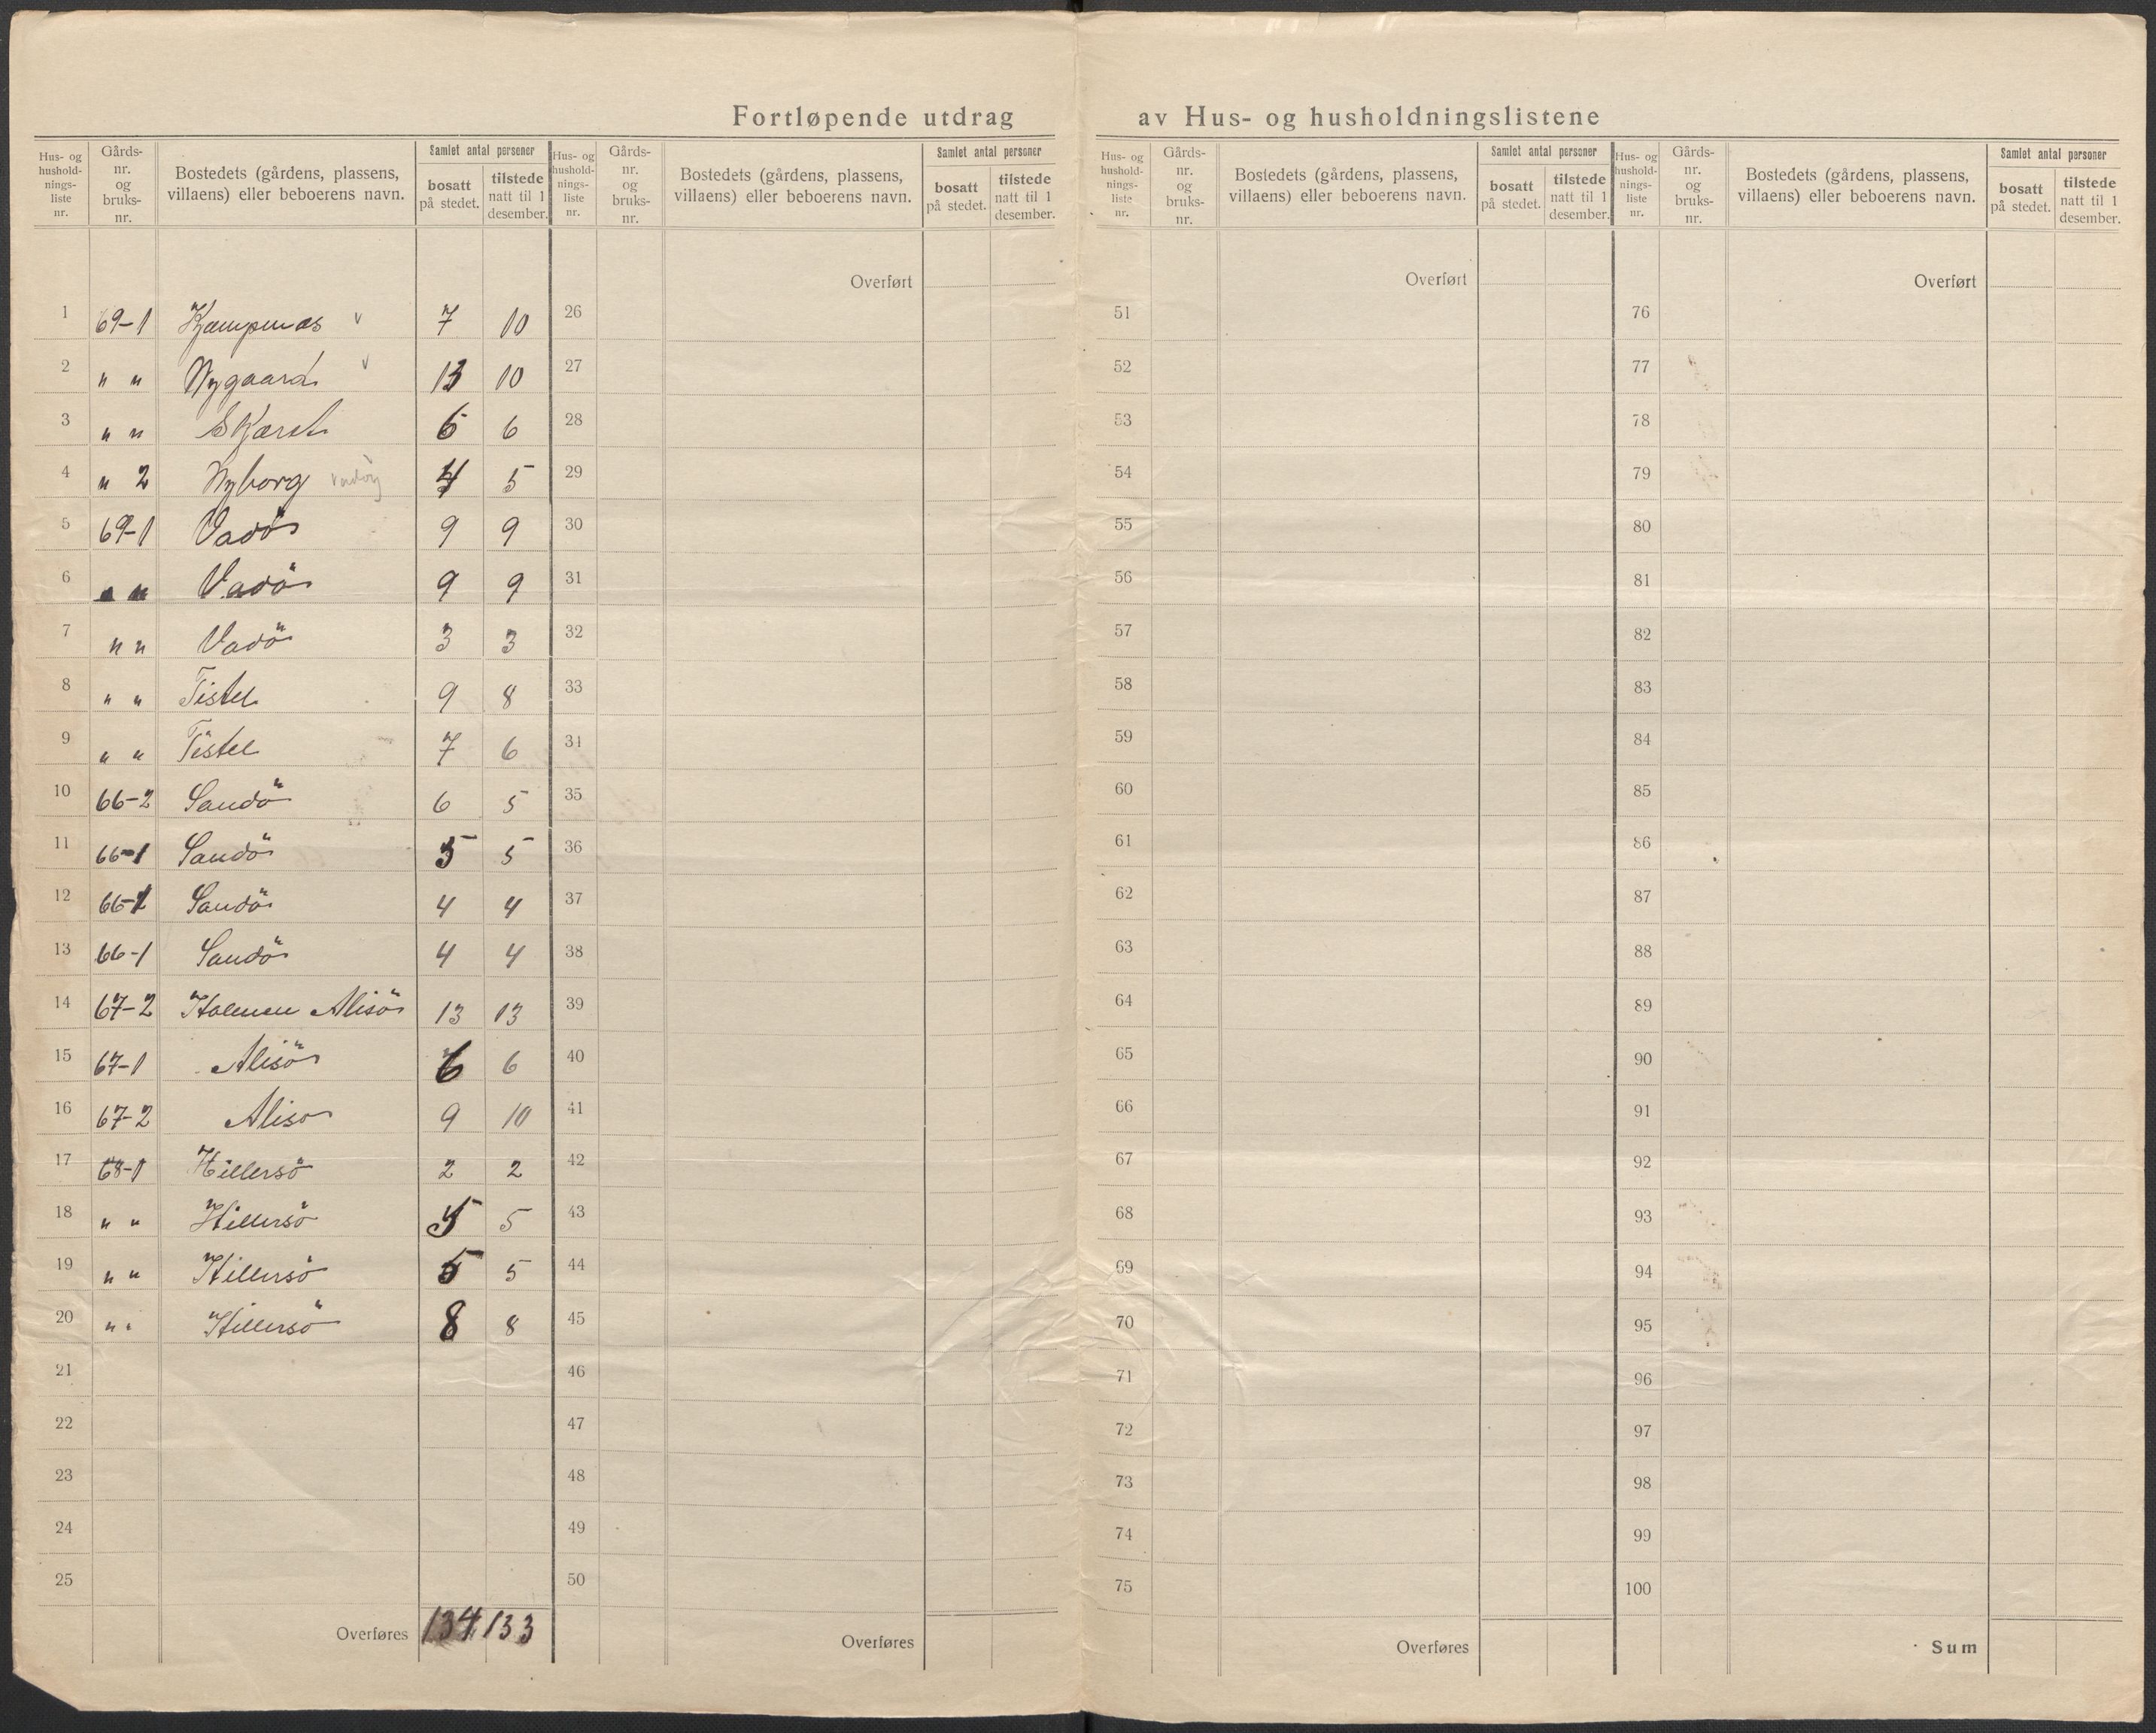 Fortløpende utdrag av Hus- og husholdningslistene
Hus- og hushold-nings-liste nr. Gårds-nr. og bruks-nr. Bostedets (gårdens, plassens, villaens) eller beboerens navn. Samlet antal personer bosatt på stedet. tilstede natt til 1 desember.
Hus- og hushold-nings-liste nr. Gårds-nr. og bruks-nr. Bostedets (gårdens, plassens, villaens) eller beboerens navn. Samlet antal personer bosatt på stedet. tilstede natt til 1 desember.
Hus- og hushold-nings-liste nr. Gårds-nr. og bruks-nr. Bostedets (gårdens, plassens, villaens) eller beboerens navn. Samlet antal personer bosatt på stedet. tilstede natt til 1 desember.
Hus- og hushold-nings-liste nr. Gårds-nr. og bruks-nr. Bostedets (gårdens, plassens, villaens) eller beboerens navn. Samlet antal personer bosatt på stedet. tilstede natt til 1 desember.
Overført Overført Overført
1 69-1 Kjæmpenæs v 7 10 26 51 76
2 " " Nygaard v 13 10 27 52 77
3 " " Skjæret 6 6 28 53 78
4 " 2 Nyborg 4 5 29 54 79
5 69-1 Vadö 9 9 30 55 80
6 " " Vadö 9 9 31 56 81
7 " " Vadö 3 3 32 57 82
8 " " Tistel 9 8 33 58 83
9 " " Tistel 7 6 34 59 84
10 66-2 Sandö 6 5 35 60 85
11 66-1 Sandö 5 5 36 61 86
12 66-1 Sandö 4 4 37 62 87
13 66-1 Sandö 4 4 38 63 88
14 67-2 Holmen Alisö 13 13 39 64 89
15 67-1 Alisö 6 6 40 65 90
16 67-2 Aliso 9 10 41 66 91
17 68-1 Hillersö 2 2 42 67 92
18 " " Hillersö 5 5 43 68 93
19 " " Hillersö 5 5 44 69 94
20 " " Hillersö 8 8 45 70 95
21 46 71 96
22 47 72 97
23 48 73 98
24 49 74 99
25 50 75 100
Overføres 134 133 Overføres Overføres Sum